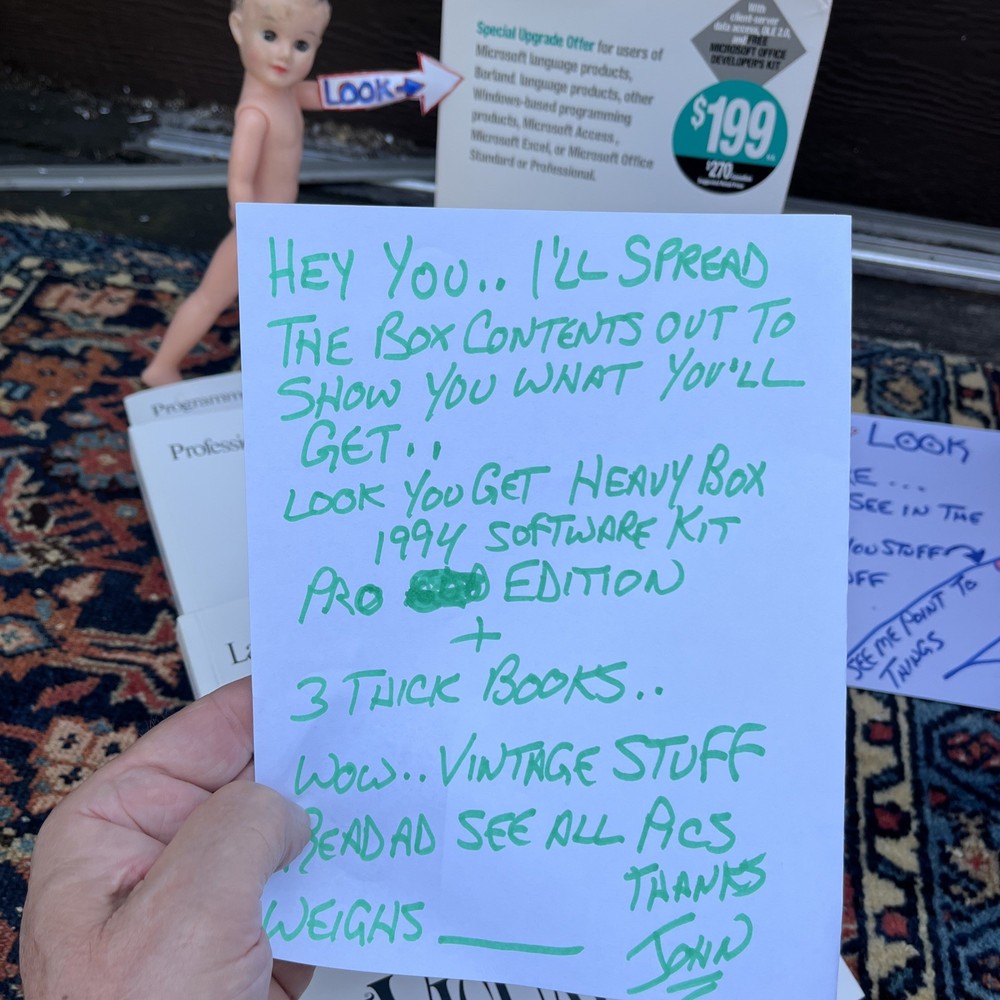 Special Upgrade Offer for users of
Microsoft language products,
Borland language products, other
Windows-based programming
products, Microsoft Access,
Microsoft Excel, or Microsoft Office
Standard or Professional.
With
client-server
data access, OLE 2.0,
and FREE
MICROSOFT OFFICE
DEVELOPER'S KIT
$199
$270
LOOK
HEY YOU.. I'LL SPREAD
THE BOX CONTENTS OUT TO
SHOW YOU WHAT YOU'LL
GET..
LOOK YOU GET HEAVY BOX
1994 SOFTWARE KIT
PRO EDITION
+
3 THICK BOOKS..
WOW.. VINTAGE STUFF
READ AD SEE ALL PICS
THANKS
WEIGHS ______
JOHN
Programm
Professi
La
LOOK
E ...
SEE IN THE
YOU STUFF
OFF
SEE ME POINT TO
THINGS